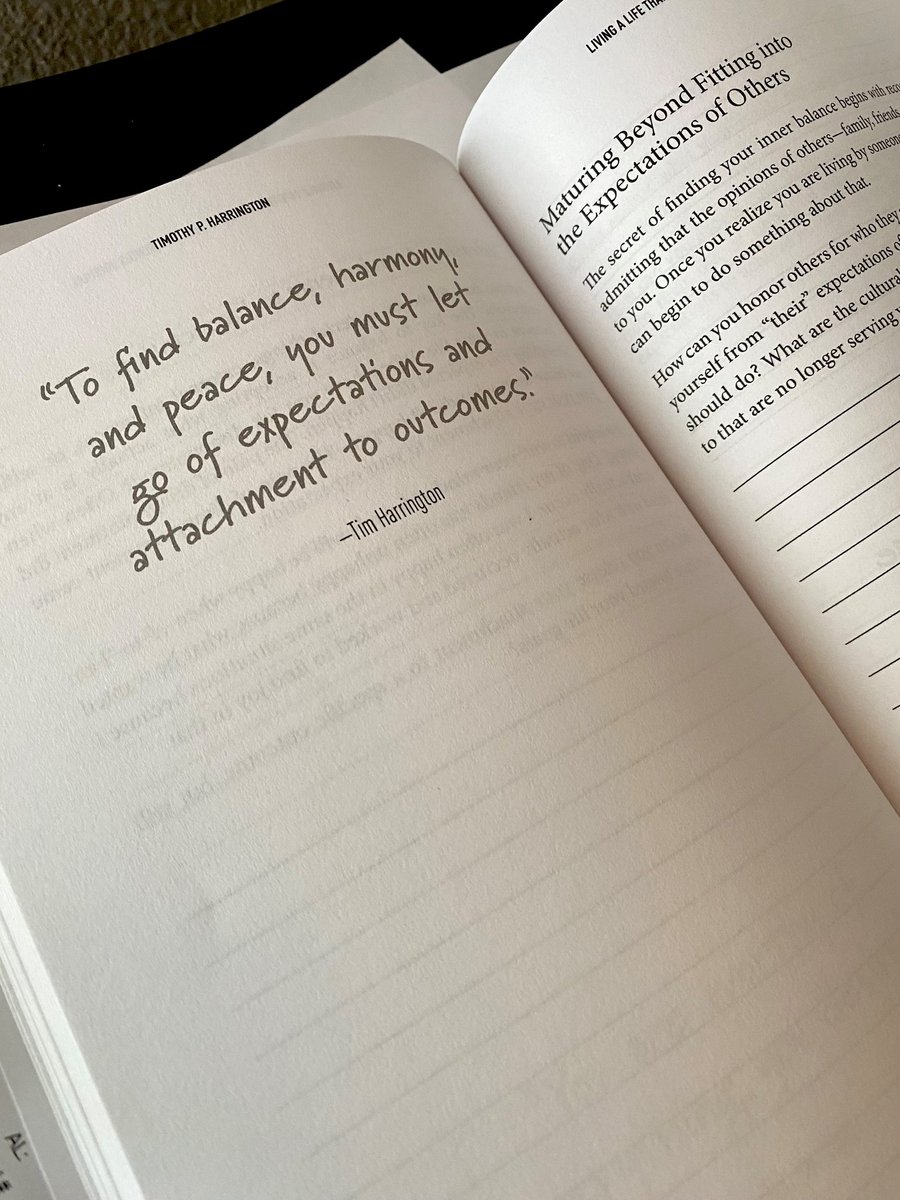 TIMOTHY P. HARRINGTON
“To find balance, harmony,
and peace, you must let
go of expectations and
attachment to outcomes.”
—Tim Harrington
LIVING A LIFE
Maturing Beyond Fitting into
the Expectations of Others
The secret of finding your inner balance begins with
admitting that the opinions of others—family, friends
to you. Once you realize you are living by
can begin to do something about that.
How can you honor others for who they
yourself from “their” expectations
should do? What are the cultural
to that are no longer serving
AL: